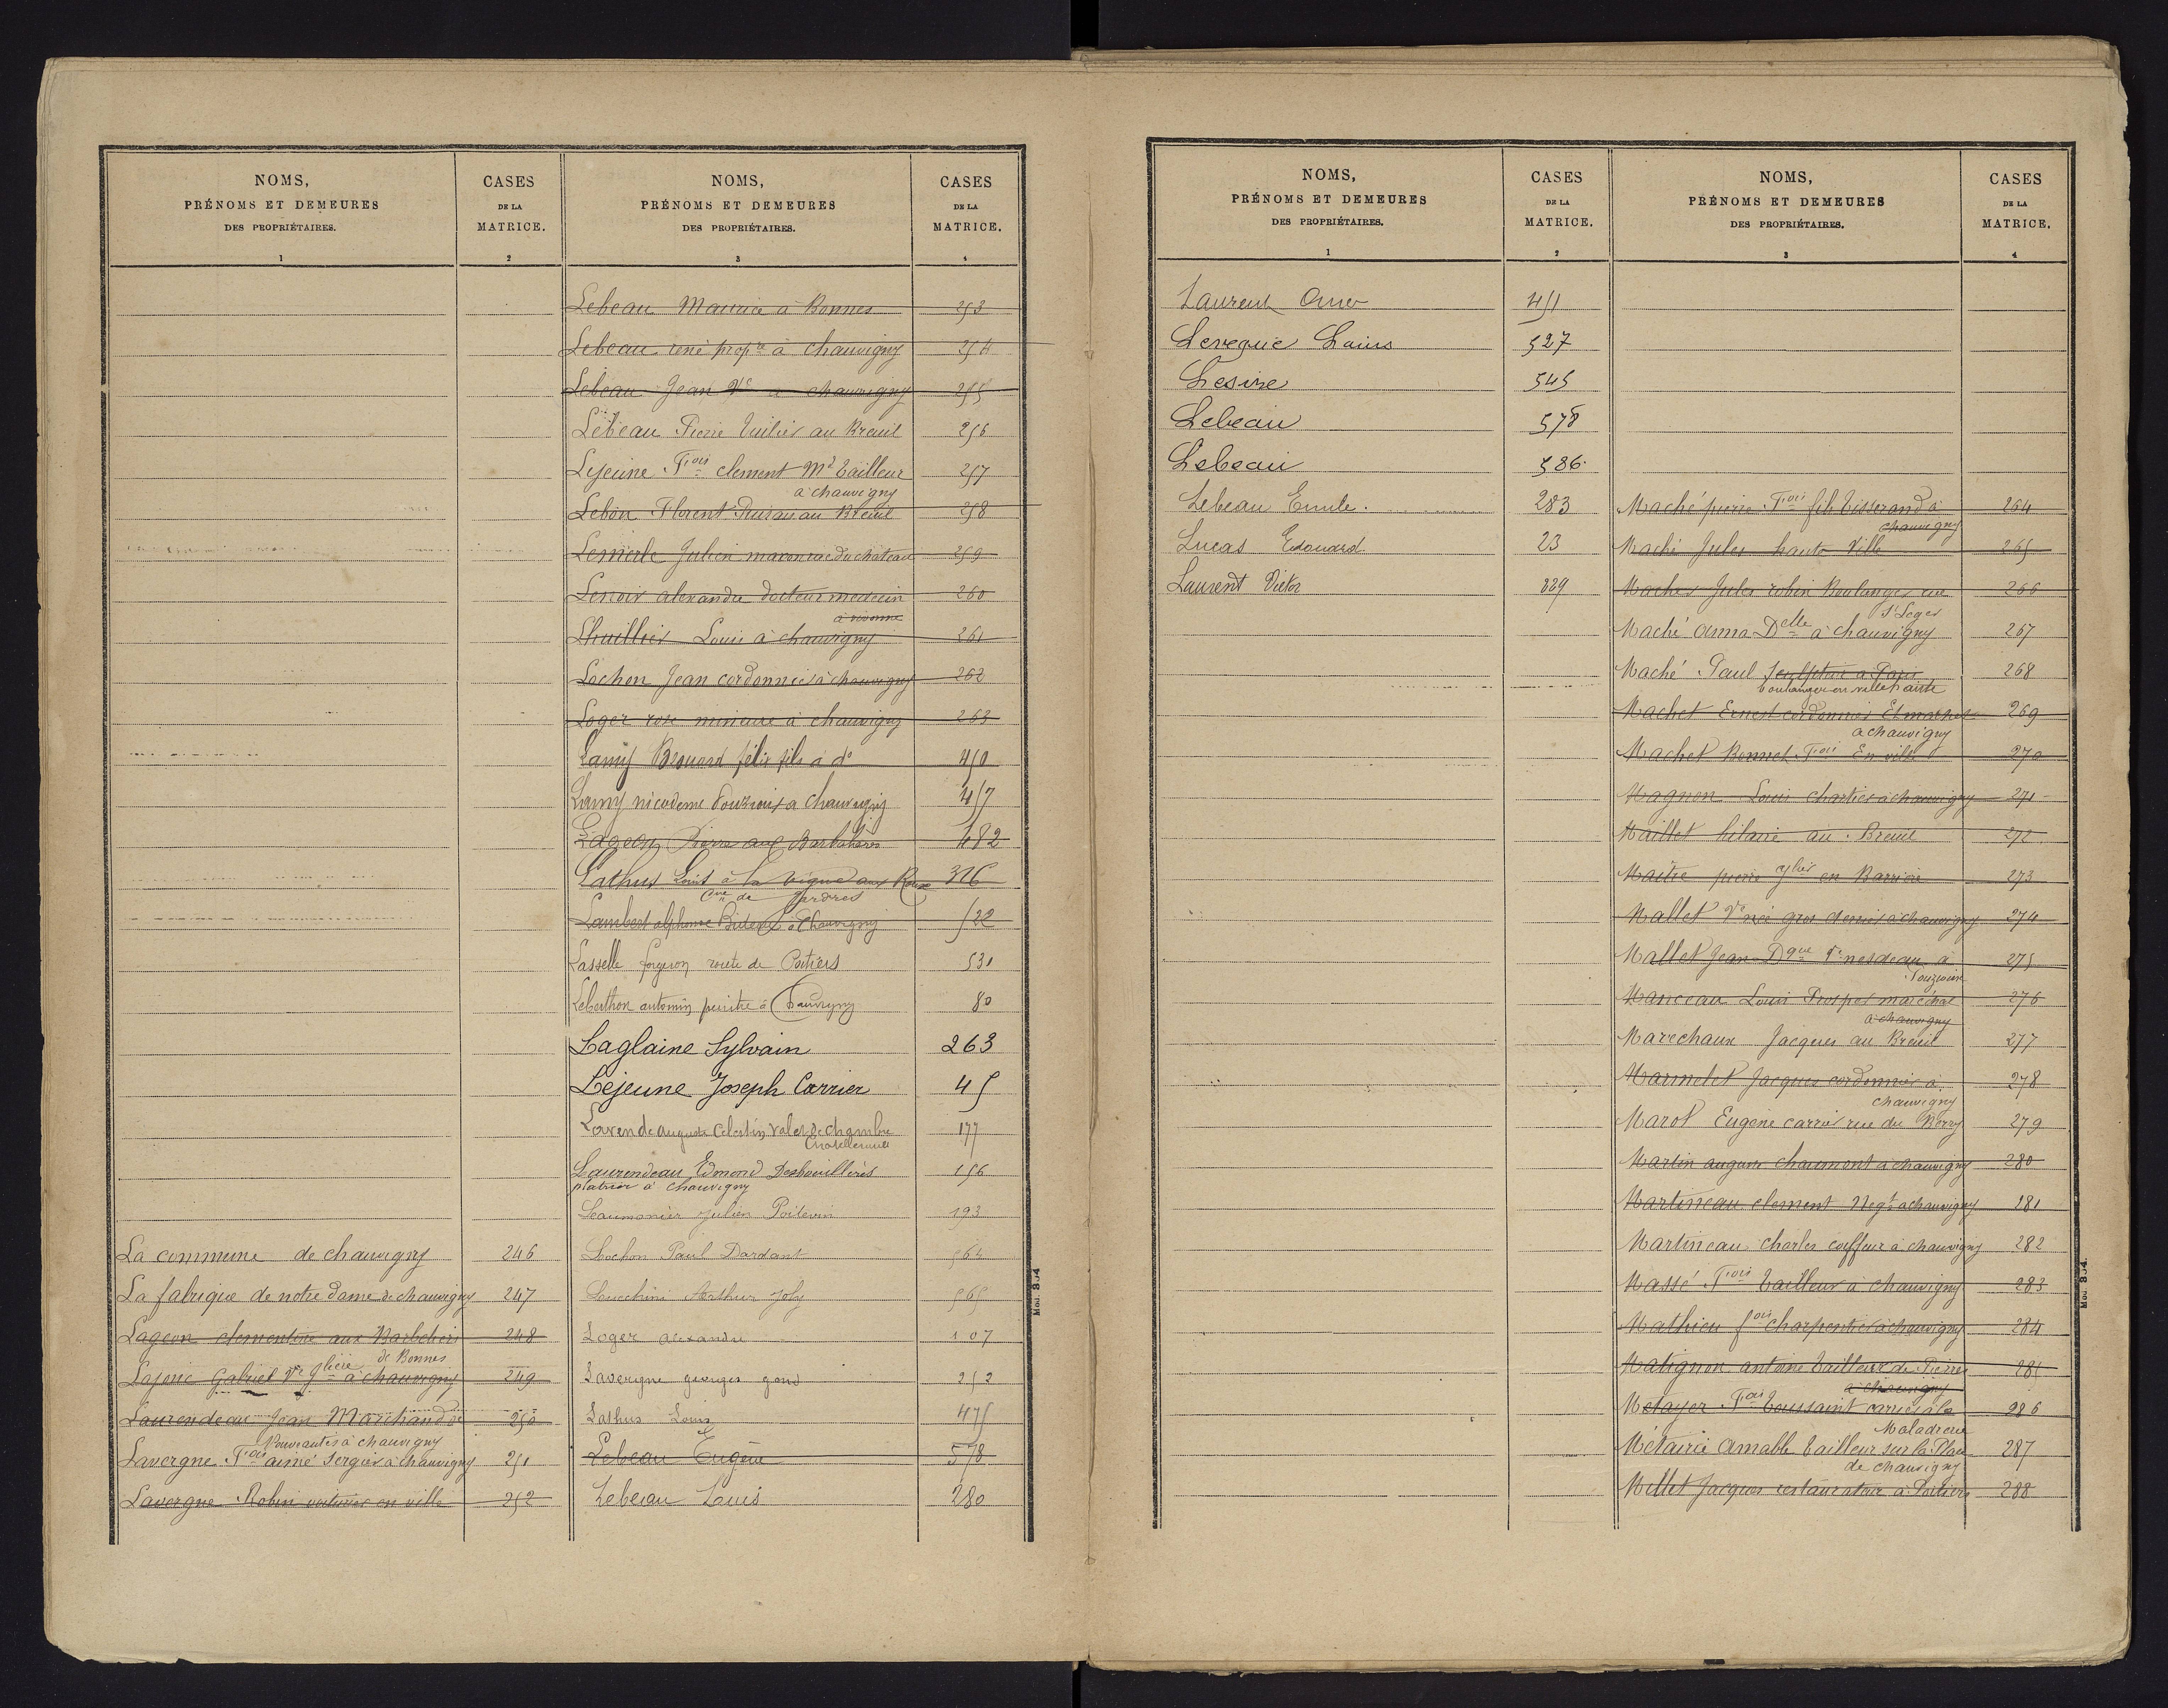 NOMS,
PRÉNOMS ET DEMEURES
DES PROPRIÉTAIRES.
1
CASES
DE LA
MATRICE.
2
La commune de chauvigny 246
La fabrique de notre dame de chauvigny 247
Lageon clementine aux Barbelières 248
de Bonnes
Lajoric Gabriel Vve à chauvigny 249
Laurendeau Jean Marchand de 250
Nouveautés à chauvigny
Lavergne Fois aimé Sergier à chauvigny 251
Lavergne Robin voiturier en ville 252
NOMS,
PRÉNOMS ET DEMEURES
DES PROPRIÉTAIRES.
3
CASES
DE LA
MATRICE.
4
Lebeau Maurice à Bonnes 253
Lebeau rené propre à chauvigny 254
Lebeau Jean Ve à chauvigny 255
Lebeau Pierre tuilier au Breuil 256
Lejeune Fois clement Md tailleur 257
à chauvigny
Lebon Florent au Breuil 258
Lemerle Julien macon rue du chateau 259
Lenoir alexandre docteur medecin 260
à vivonne
Lhuillier Louis à chauvigny 261
Lochon Jean cordonnier à chauvigny 262
Loger rose mineure à chauvigny 263
Lamy Brouard félix fils à do 450
Lamy nicodeme Pouzioux a Chauvigny 457
Lageon Pierre aux Barbelières 482
Lathus Louis à la Vigne aux Roux 376
Cne de Jardres
Lambert alphonse à Chauvigny 522
Lasselle forgeron route de Poitiers 531
Leberthon antonin peintre à Chauvigny 80
Laglaine Sylvain 263
Lejeune Joseph Carrier 45
Lavende Auguste Celestin valet de chambre 177
Chatellerault
Laurendeau Edmond Desbouillères 156
platrier à chauvigny
Leaumonier Julien Poitevin 193
Lochon Paul Dardant 564
Lucchini Arthur Joly 565
Loger alexandre 107
Lavergne georges gond 252
Lathus Louis 475
Lebeau Eugène 578
Lebeau Louis 280
Mod. 304
NOMS,
PRÉNOMS ET DEMEURES
DES PROPRIÉTAIRES.
1
CASES
DE LA
MATRICE.
2
Laurent Omer 451
Leveque Louis 527
Lesire 545
Lebeau 578
Lebeau 586
Lebeau Emile. 283
Lucas Edouard 23
Laurent Victor 329
NOMS,
PRÉNOMS ET DEMEURES
DES PROPRIÉTAIRES.
3
CASES
DE LA
MATRICE.
4
Maché pierre Fois fils tisserand à 264
chauvigny
Maché Jules haute Ville 265
Machet Jules robin Boulanger rue 266
St Leger
Maché anna Delle à chauvigny 267
Maché Paul sculpteur a Paris 268
boulanger en ville haute
Machet Ernest cordonnier 269
à chauvigny
Machet Bonnet Fois En ville 270
Magnon Louis chartier à chauvigny 271
Maillet hilaire au Breuil 272
Maitre pierre en Barrière 273
Mallet Ve née gros denis à chauvigny 274
Mallet Jean Dque à 275
Pouzioux
Manceau Louis Prosper maréchal 276
à chauvigny
Marechaux Jacques au Breuil 277
Marmelet Jacques cordonnier à 278
chauvigny
Marot Eugène carrier rue du Berry 279
Martin auguste chaumont à chauvigny 280
Martineau clement Negt à chauvigny 281
Martineau charles coiffeur à chauvigny 282
Massé Fois tailleur à chauvigny 283
Mathieu fois charpentier à chauvigny 284
Matignon antoine tailleur de Pierre 285
à chauvigny
Metayer Fois toussaint carrier à la 286
Maladrerie
Métairie Amable tailleur sur la Place 287
de chauvigny
Millet Jacques restaurateur à Poitiers 288
Mod. 304.